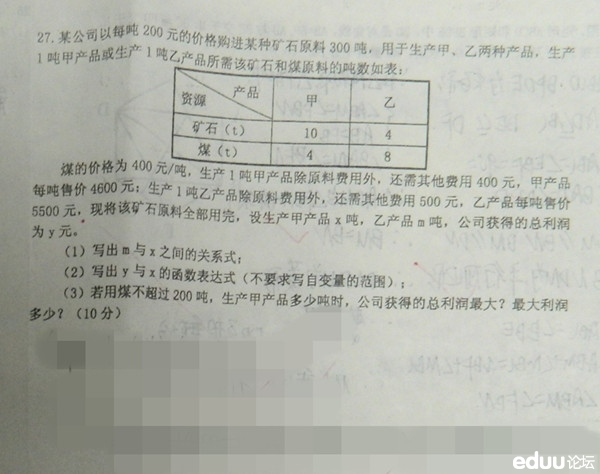 27.某公司以每吨200元的价格购进某种矿石原料300吨，用于生产甲、乙两种产品，生产
1吨甲产品或生产1吨乙产品所需该矿石和煤原料的吨数如表：
产品
资源 甲 乙
矿石（t） 10 4
煤（t） 4 8
煤的价格为400元/吨，生产1吨甲产品除原料费用外，还需其他费用400元，甲产品
每吨售价4600元；生产1吨乙产品除原料费用外，还需其他费用500元，乙产品每吨售价
5500元，现将该矿石原料全部用完，设生产甲产品x吨，乙产品m吨，公司获得的总利润
为y元。
（1）写出m与x之间的关系式；
（2）写出y与x的函数表达式（不要求写自变量的范围）；
（3）若用煤不超过200吨，生产甲产品多少吨时，公司获得的总利润最大？最大利润
多少？（10分）
eduu论坛